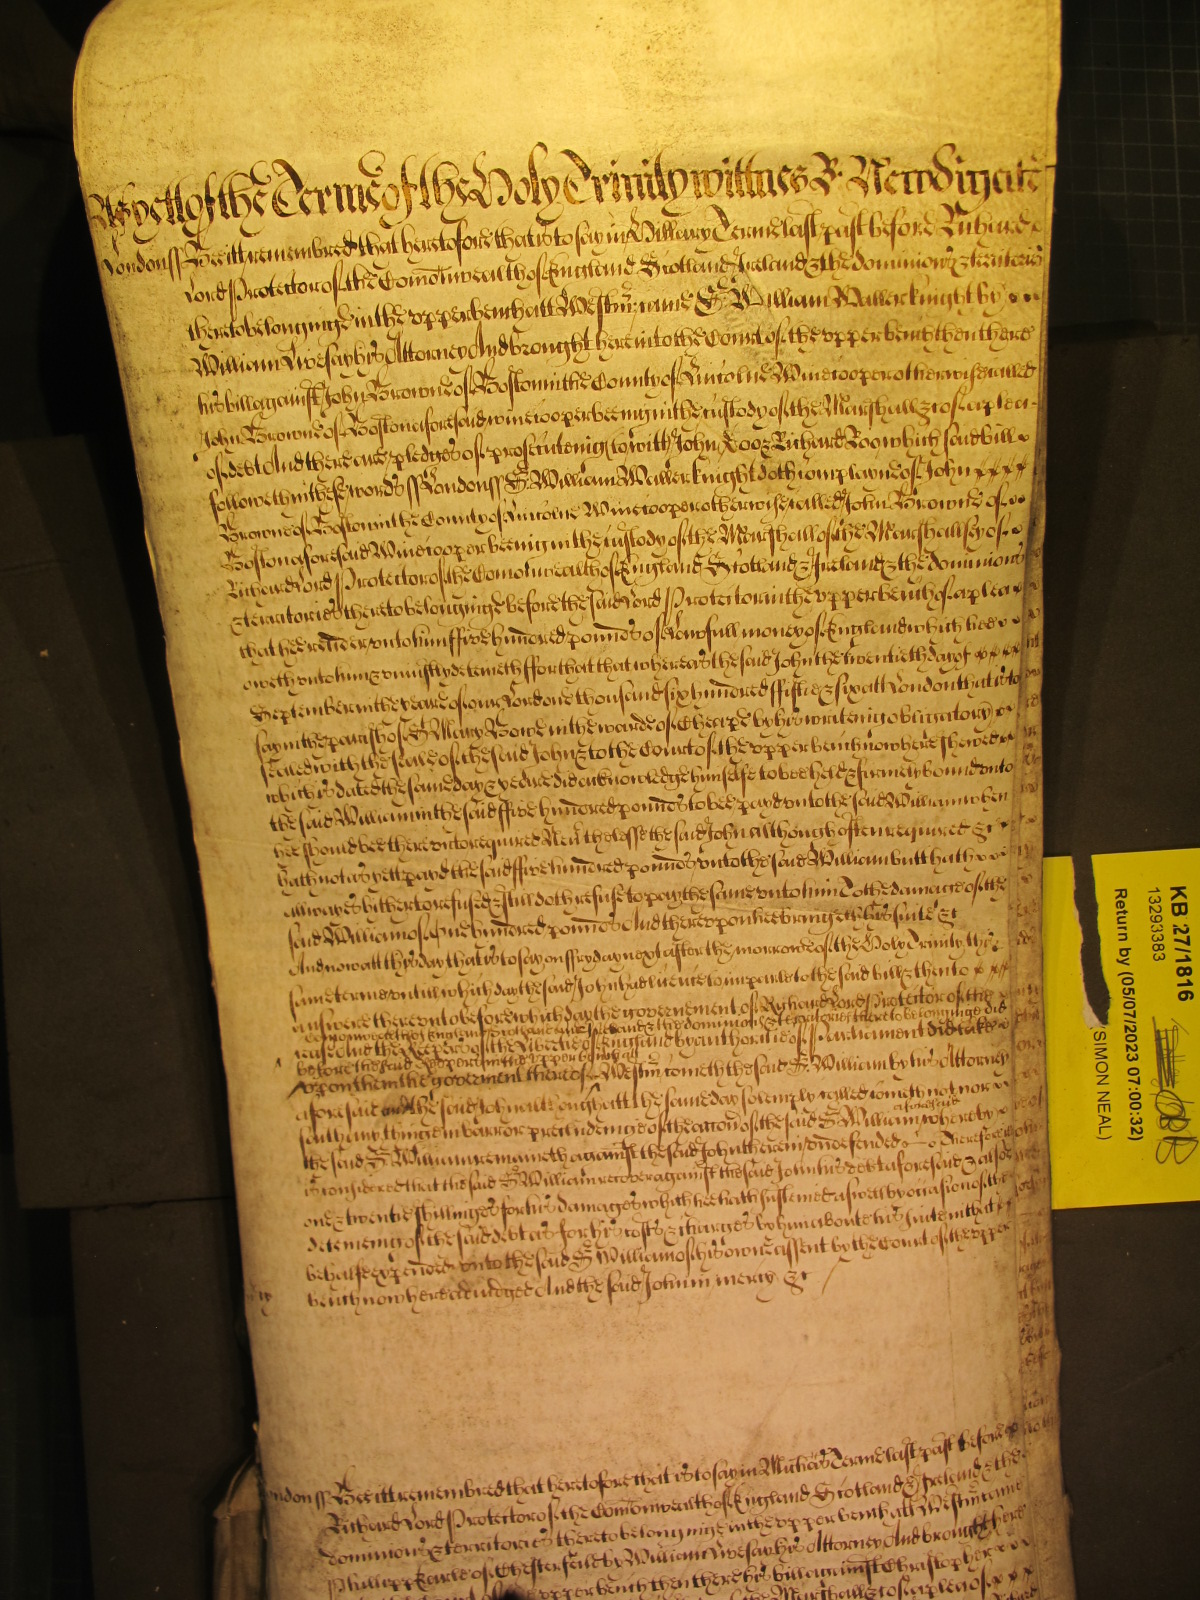 As yett of the Terme of the Holy Trinity wittnes R: Newdigate
London ss Bee itt remembred that heretofore that is to say in Hillary Terme last past before Richard
Lord Protector of the Com̄onwealth of England Scotland & Ireland & the dominions & territories
thereto belonginge in the vpper bench att Westmr̄ came Sr William Waller knight by
William Livesay his Attorney And brought here into the Court of the vpper bench then there
his bill against John Browne of Boston in the County of Lincolne Winecooper otherwise called
John Browne of Boston aforesaid winecooper beeing in the custody of the Marshall &c of a plea
of debt And there are pledges of prosecuteing to witt John Doo & Richard Roo which said bill
followeth in these words ss London ss Sr William Waller knight doth complayne of John
Browne of Boston in the County of Lincolne Winecooper otherwise called John Browne of
Boston aforesaid Winecooper beeing in the custody of the Marshall of the Marshallsey of
Richard Lord Protector of the Com̄onwealth of England Scotland & Ireland & the dominions
& territories thereto belonginge before the said Lord Protector in the vpper bench of a plea
that hee render vnto him ffive hundred pounds of lawfull money of England which hee
oweth vnto him & vniustly deteineth ffor that that whereas the said John the twentieth day of
September in the yeare of our Lord one thousand six hundred ffiftie & six att London that is to
say in the parish of St Mary Bowe in the warde of Cheape by his writeing obligatory
sealed with the seale of the said John & to the Court of the vpper bench now here shewed
which is dated the same day & yeare did acknowledge himselfe to bee held & firmely bound vnto
the said William in the said ffive hundred pounds to bee payd vnto the said William when
hee should bee therevnto required Neverthelesse the said John although often required &c
hath not as yett payd the said ffive hundred pounds vnto the said William butt hath
allwayes hitherto refused & still doth refuse to pay the same vnto him To the damage of the
said William of One hundred pounds And therevpon hee bringeth his suite &c
And now att this day that is to say on ffryday next after the morrowe of the Holy Trinity this
same terme vntil which day the said John had licence to imparle to the said bill & then to
answere therevnto before which day the governement of Richard Lord Protector of the
Com̄onwealth of England Scotland and Ireland & the dominions & territories thereto belonginge did
cease And the Keepers of the Libertie of England by authoritie of Parliament did take
before the said Keepers in the vpper bench att
vpon them the goverment thereof Westmr̄ cometh the said Sr William by his Attorney
aforesaid and the said John although att the same day solemply called cometh not nor
saith any thinge in barr or precludeinge of the action of the said Sr William
aforesaid
whereby
the said Sr William remaineth against the said John therein vndefended Therefore
is considered that the said Sr William recover against the said John his debt aforesaid & alsoe
one & twentie shillinges for his damages which hee hath susteined aswell by occasion of the
deteineing of the said debt as for his costs & charges by him about his suite in that
behalfe expended vnto the said Sr William of his owne assent by the Court of the vpper
bench now here adiudged And the said John in mercy &c
London ss Bee itt remembred that heretofore that is to say in Michās Terme last past before
Richard Lord Protector of the Com̄onwealth of England Scotland & Ireland & the
dominions & territories thereto belonginge in the vpper bench att Westmr̄ came
Phillipp Earle of Chesterfeild by William Livesay his Attorney And brought here
vpper bench then there his bill against Christopher
the Marshall &c of a plea of
KB 27/1816
13293383
(SIMON NEAL)
Return by (05/07/2023 07:00:32)